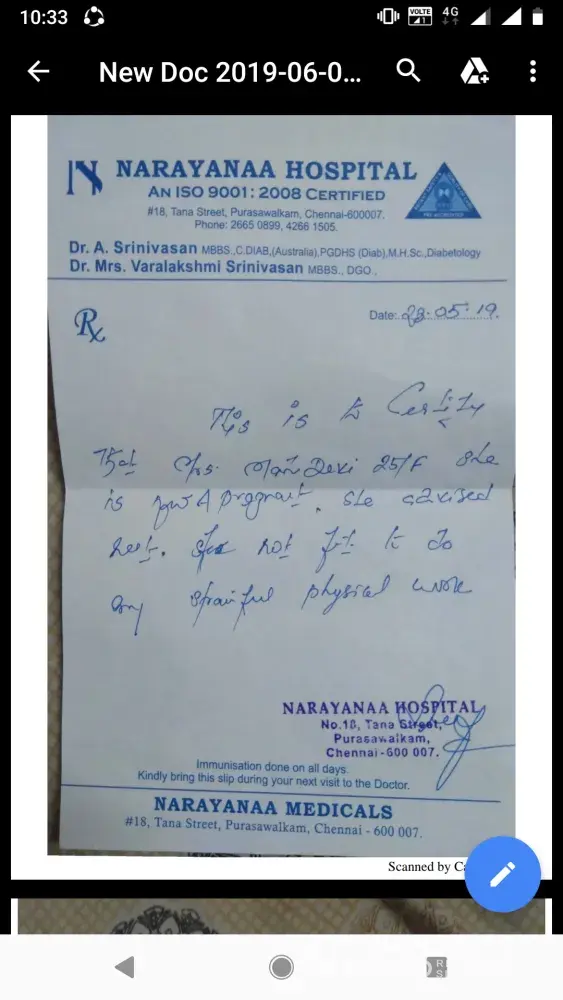 10:33
VoLTE
4G
New Doc 2019-06-0...
NARAYANAA HOSPITAL
AN ISO 9001: 2008 CERTIFIED
#18, Tana Street, Purasawalkam, Chennai-600007.
Phone: 2665 0899, 4266 1505.
Dr. A. Srinivasan MBBS.,C.DIAB,(Australia),PGDHS (Diab),M.H.Sc.,Diabetology
Dr. Mrs. Varalakshmi Srinivasan MBBS., DGO.,
Rx
Date: 28.05.19.
This is to Certify
That Mrs. Devi 25/F she
is now A pregnant. she advised
rest. She not fit to do
any strainful physical work
NARAYANAA HOSPITAL
No.18, Tana Street,
Purasawalkam,
Chennai-600 007.
Immunisation done on all days.
Kindly bring this slip during your next visit to the Doctor.
NARAYANAA MEDICALS
#18, Tana Street, Purasawalkam, Chennai - 600 007.
Scanned by